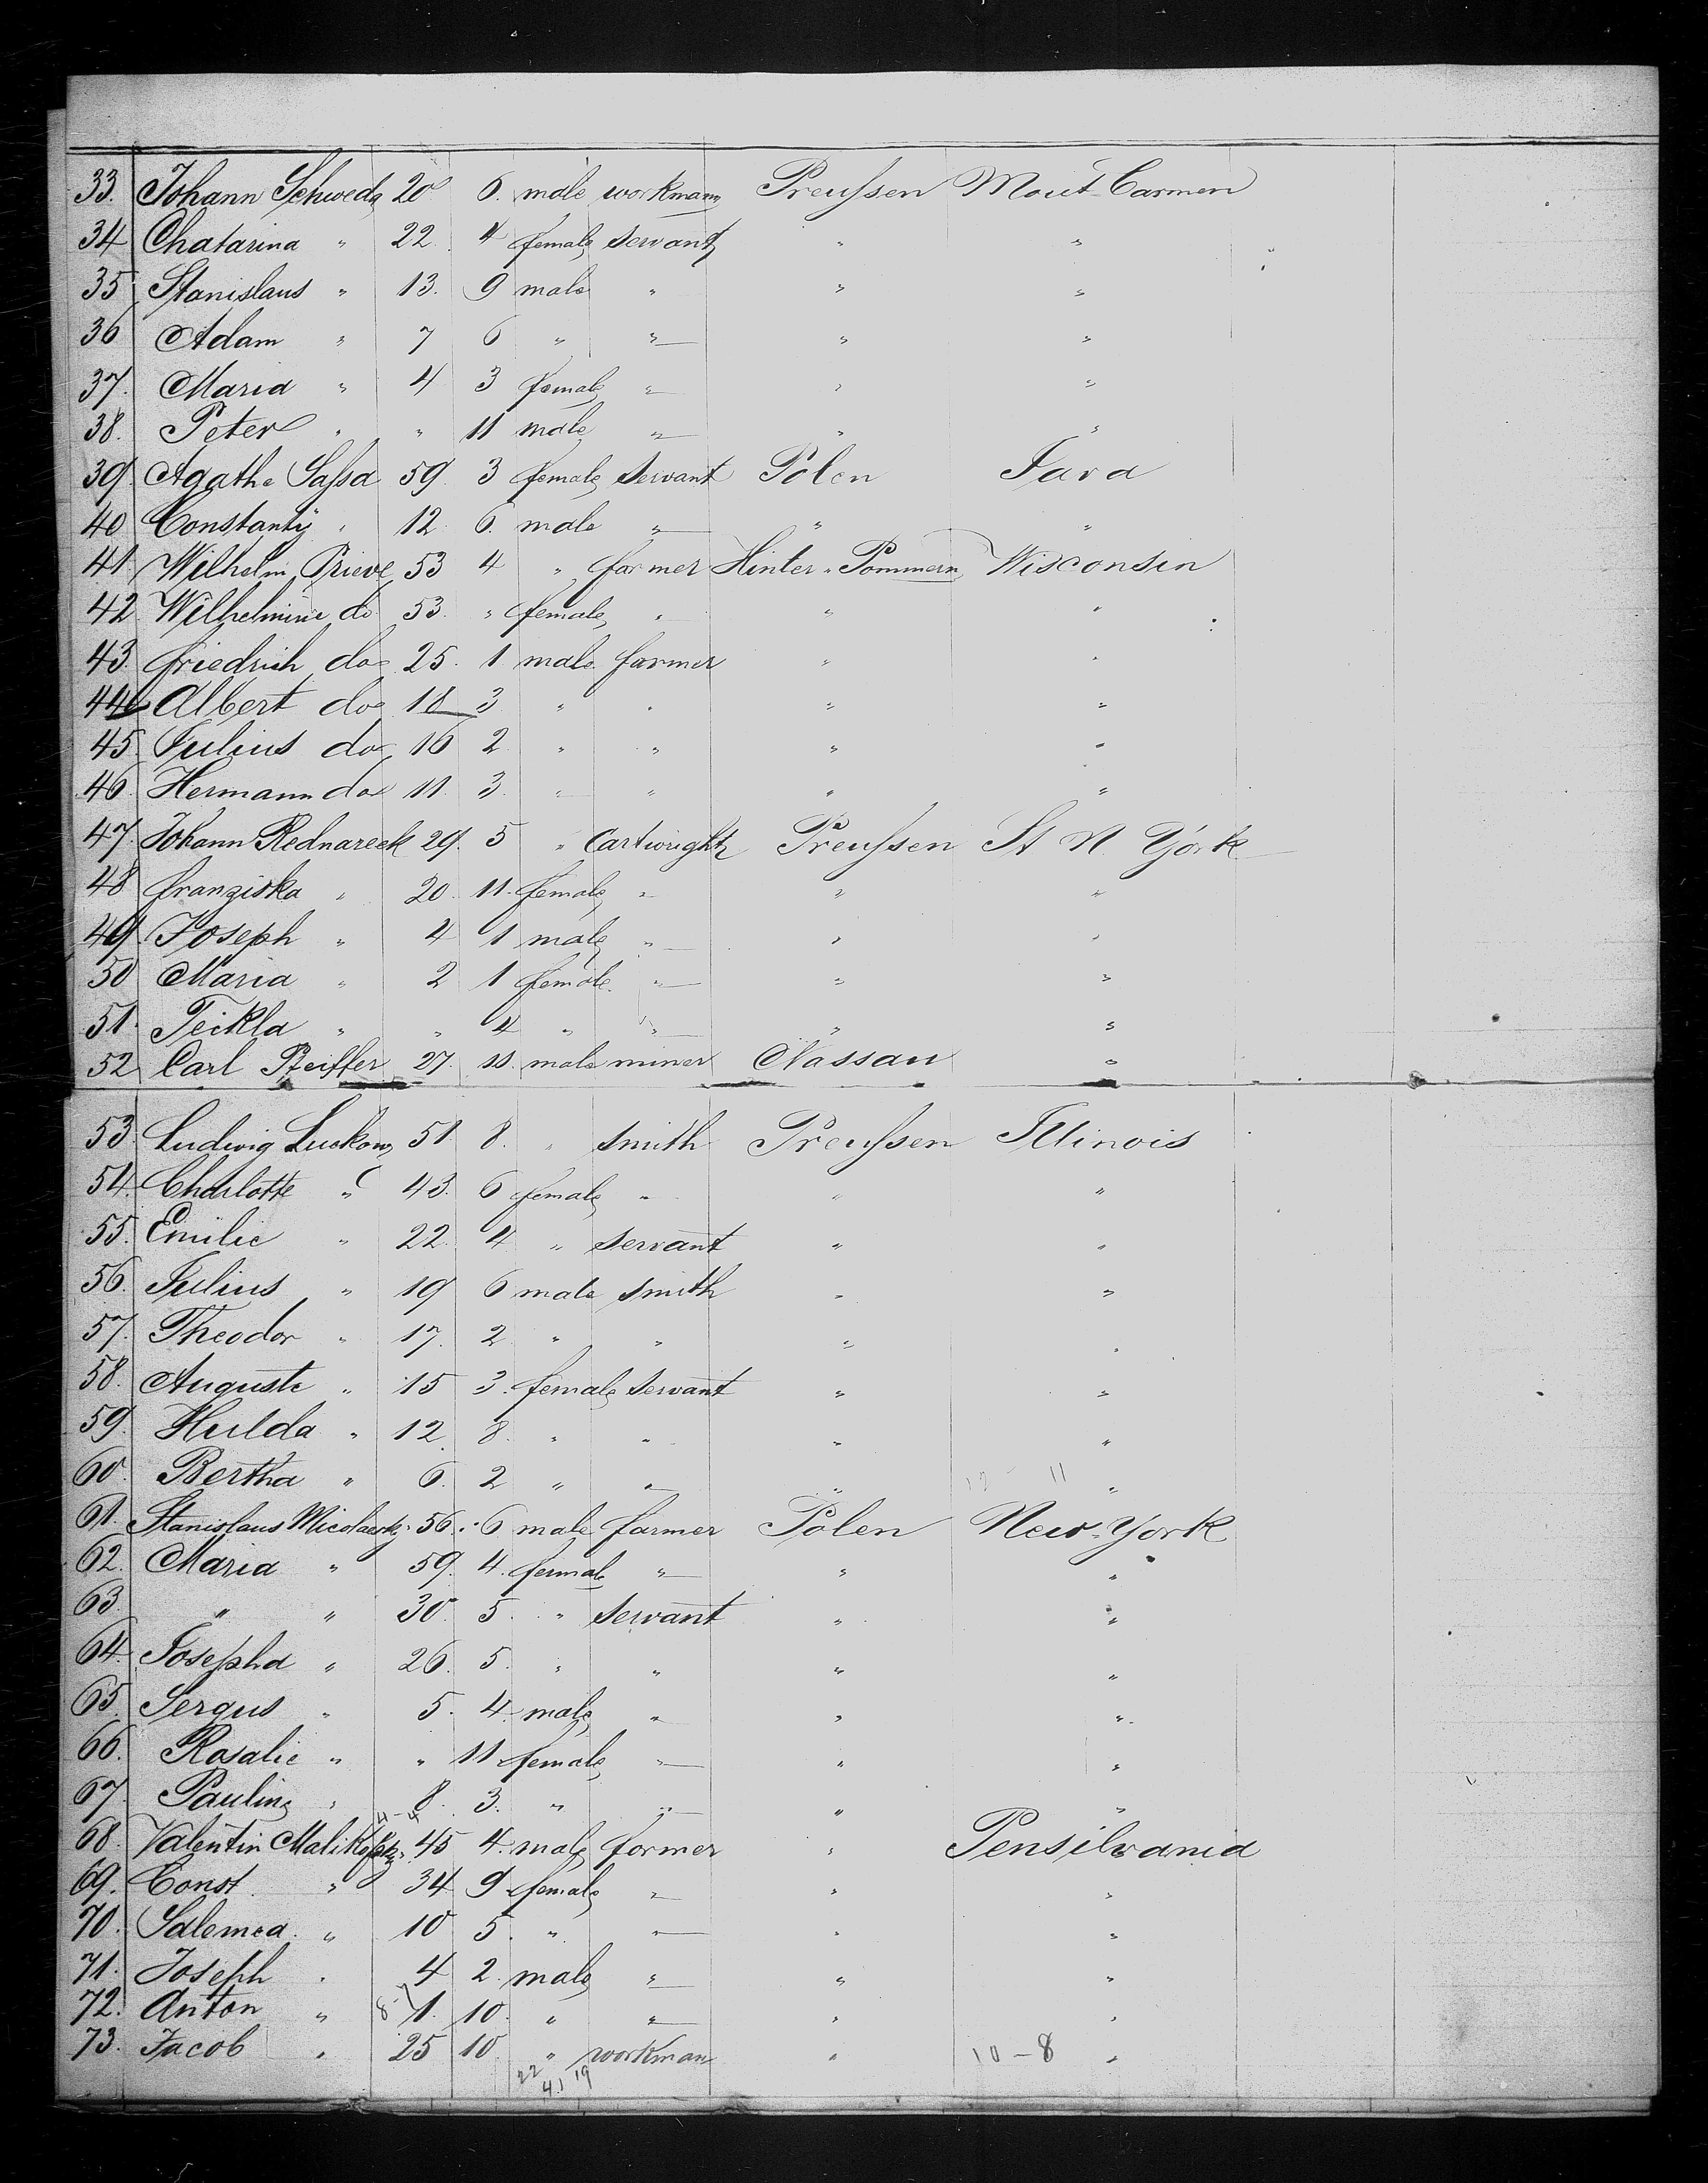 33. Johann Schweda 20 6. male workmann Preußen Mout-Carmen
34 Chatarina " 22. 4 female servant " "
35 Stanislaus " 13. 9 male " " "
36 Adam " 7 6 " " " "
37. Maria " 4 3 female " " "
38. Peter " " 11 male " " "
39. Agathe Saßa 59 3 female servant Polen Java
40 Constanty " 12 6. male " " "
41. Wilhelm Prieve 53 4 " farmer Hinter-Pommern Wisconsin
42 Wilhelmine do 53. " female " " "
43. friedrich do 25. 1 male farmer " "
44 Albert do 18 3 " " " "
45. Julius do 16 2 " " " "
46. Hermann do 11. 3. " " " "
47. Johann Rednareck 29. 5 " Cartwright Preußen St N. York
48 franziska " 20. 11. female " " "
49. Joseph " 4 1 male " " "
50 Maria " 2 1 female. " " "
51. Teikla " " 4 " " " "
52 Carl Pfeiffer 27. 11. male miner Nassau "
53. Ludwig Luckow 51 8. " smith Preußen Illinois
54. Charlotte " 43. 6 female " " "
55. Emilie " 22 4 " servant " "
56. Julius " 19 6 male smith " "
57. Theodor " 17. 2 " " " "
58. Auguste " 15 3. female servant " "
59. Hulda " 12 8. " " " "
60. Bertha " 6. 2 " " " 12 - 11 "
61. Stanislaus Micolaesky 56. 6 male farmer Polen New-York
62. Maria " 59. 4. female " " "
63 " " 30 5. " servant " "
64. Josepha " 26. 5. " " " "
65. Sergus " 5. 4. male " " "
66. Rosalie " " 11 female " " "
67. Pauline " 8. 3. " " " "
4-4
68. Valentin 45 4. male farmer " Pensilvania
69. Const. " 34 9 female " " "
70. Salemea " 10 5. " " " "
71. Joseph " 4 2. male " " "
72. Anton " 8-7 1. 10. " " " "
73. Jacob " 25 10 " workman " 10-8 "
22 41 19